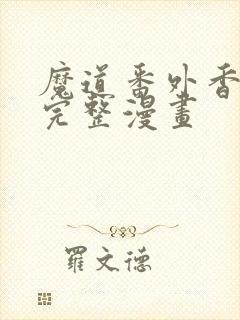 魔道番外香
完整漫畫
羅文德